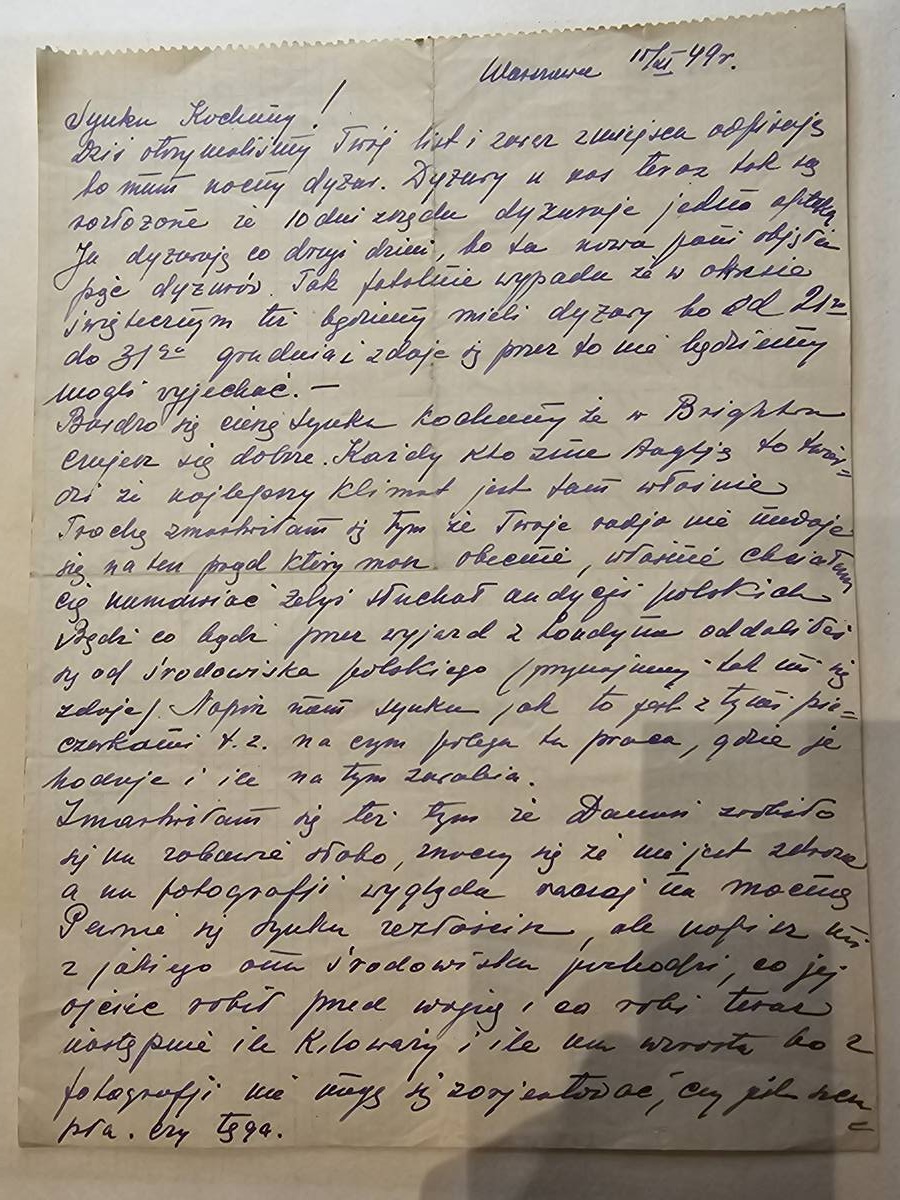 Warszawa 15/XI 49 r.
Synku Kochany!
Dziś otrzymaliśmy Twój list i zaraz z miejsca odpisuję
bo mam nocny dyżur. Dyżury u nas teraz tak są
rozłożone że 10 dni z rzędu dyżuruje jedna apteka
Ja dyżuruję co drugi dzień, bo ta nowa pani objęła
pięć dyżurów. Tak fatalnie wypada że w okresie
świątecznym też będziemy mieli dyżury bo od 21go
do 31go grudnia i zdaje się przez to nie będziemy
mogli wyjechać. —
Bardzo się cieszę synku kochany że w Brighton
czujesz się dobrze. Każdy kto zna Anglję to twier=
dzi że najlepszy klimat jest tam właśnie
Trochę zmartwiłam się tym że Twoje radjo nie nadaje
się na ten prąd który masz obecnie, właśnie chciałam
cię namawiać żebyś słuchał audycji polskich
Bądź co bądź przez wyjazd z Londynu oddaliłeś
się od środowiska polskiego (przynajmniej tak mi się
zdaje). Napisz nam synku jak to jest z tymi pie=
czarkami t.z. na czym polega ta praca, gdzie je
hoduje i ile na tym zarabia.
Zmartwiłam się też tym że Danusi zrobiło
się na zabawie słabo, znaczy się że nie jest zdrowa
a na fotografji wygląda raczej na mocną
Pewnie się synku zezłościsz, ale napisz mi
z jakiego ona środowiska pochodzi, co jej
ojciec robił przed wojną i co robi teraz
następnie ile kilo waży i ile ma wzrostu bo z
fotografji nie mogę się zorjentować, czy jest szczu
=
pła. czy tęga.